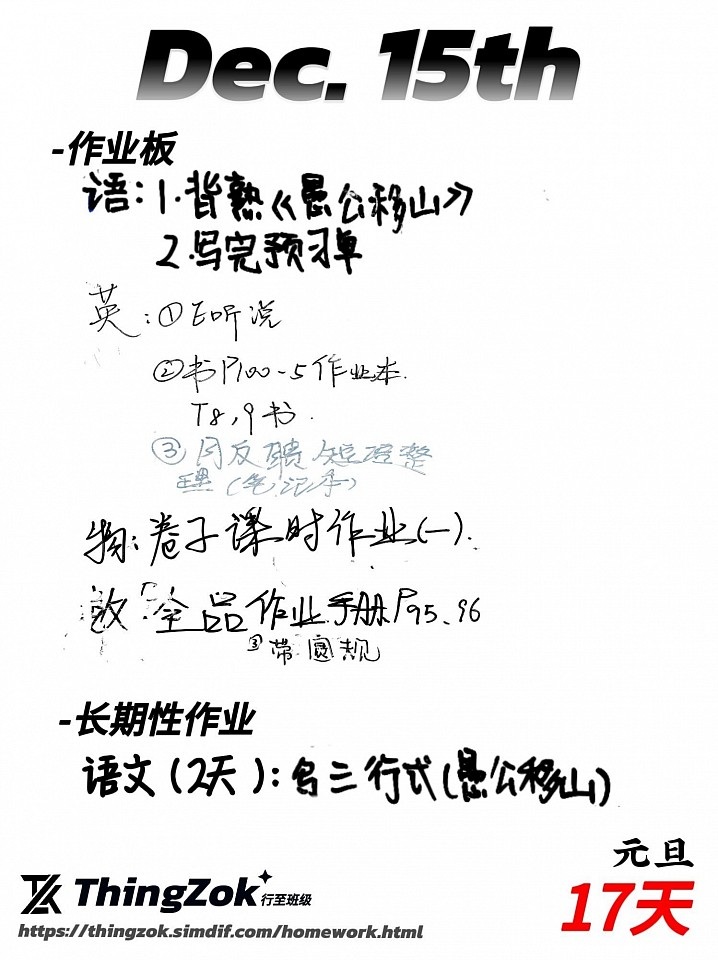 Dec. 15th
-作业板
语:1.背熟《愚公移山》
2.写完预习单
英:①E听说
②书P100-5作业本.
T8,9书.
理(笔记本)
物:卷子课时作业(一).
数:全品作业手册P95、96
③带圆规
-长期性作业
语文(2天):名三行式(愚公移山)
元旦
17天
ThingZok 行至班级
https://thingzok.simdif.com/homework.html